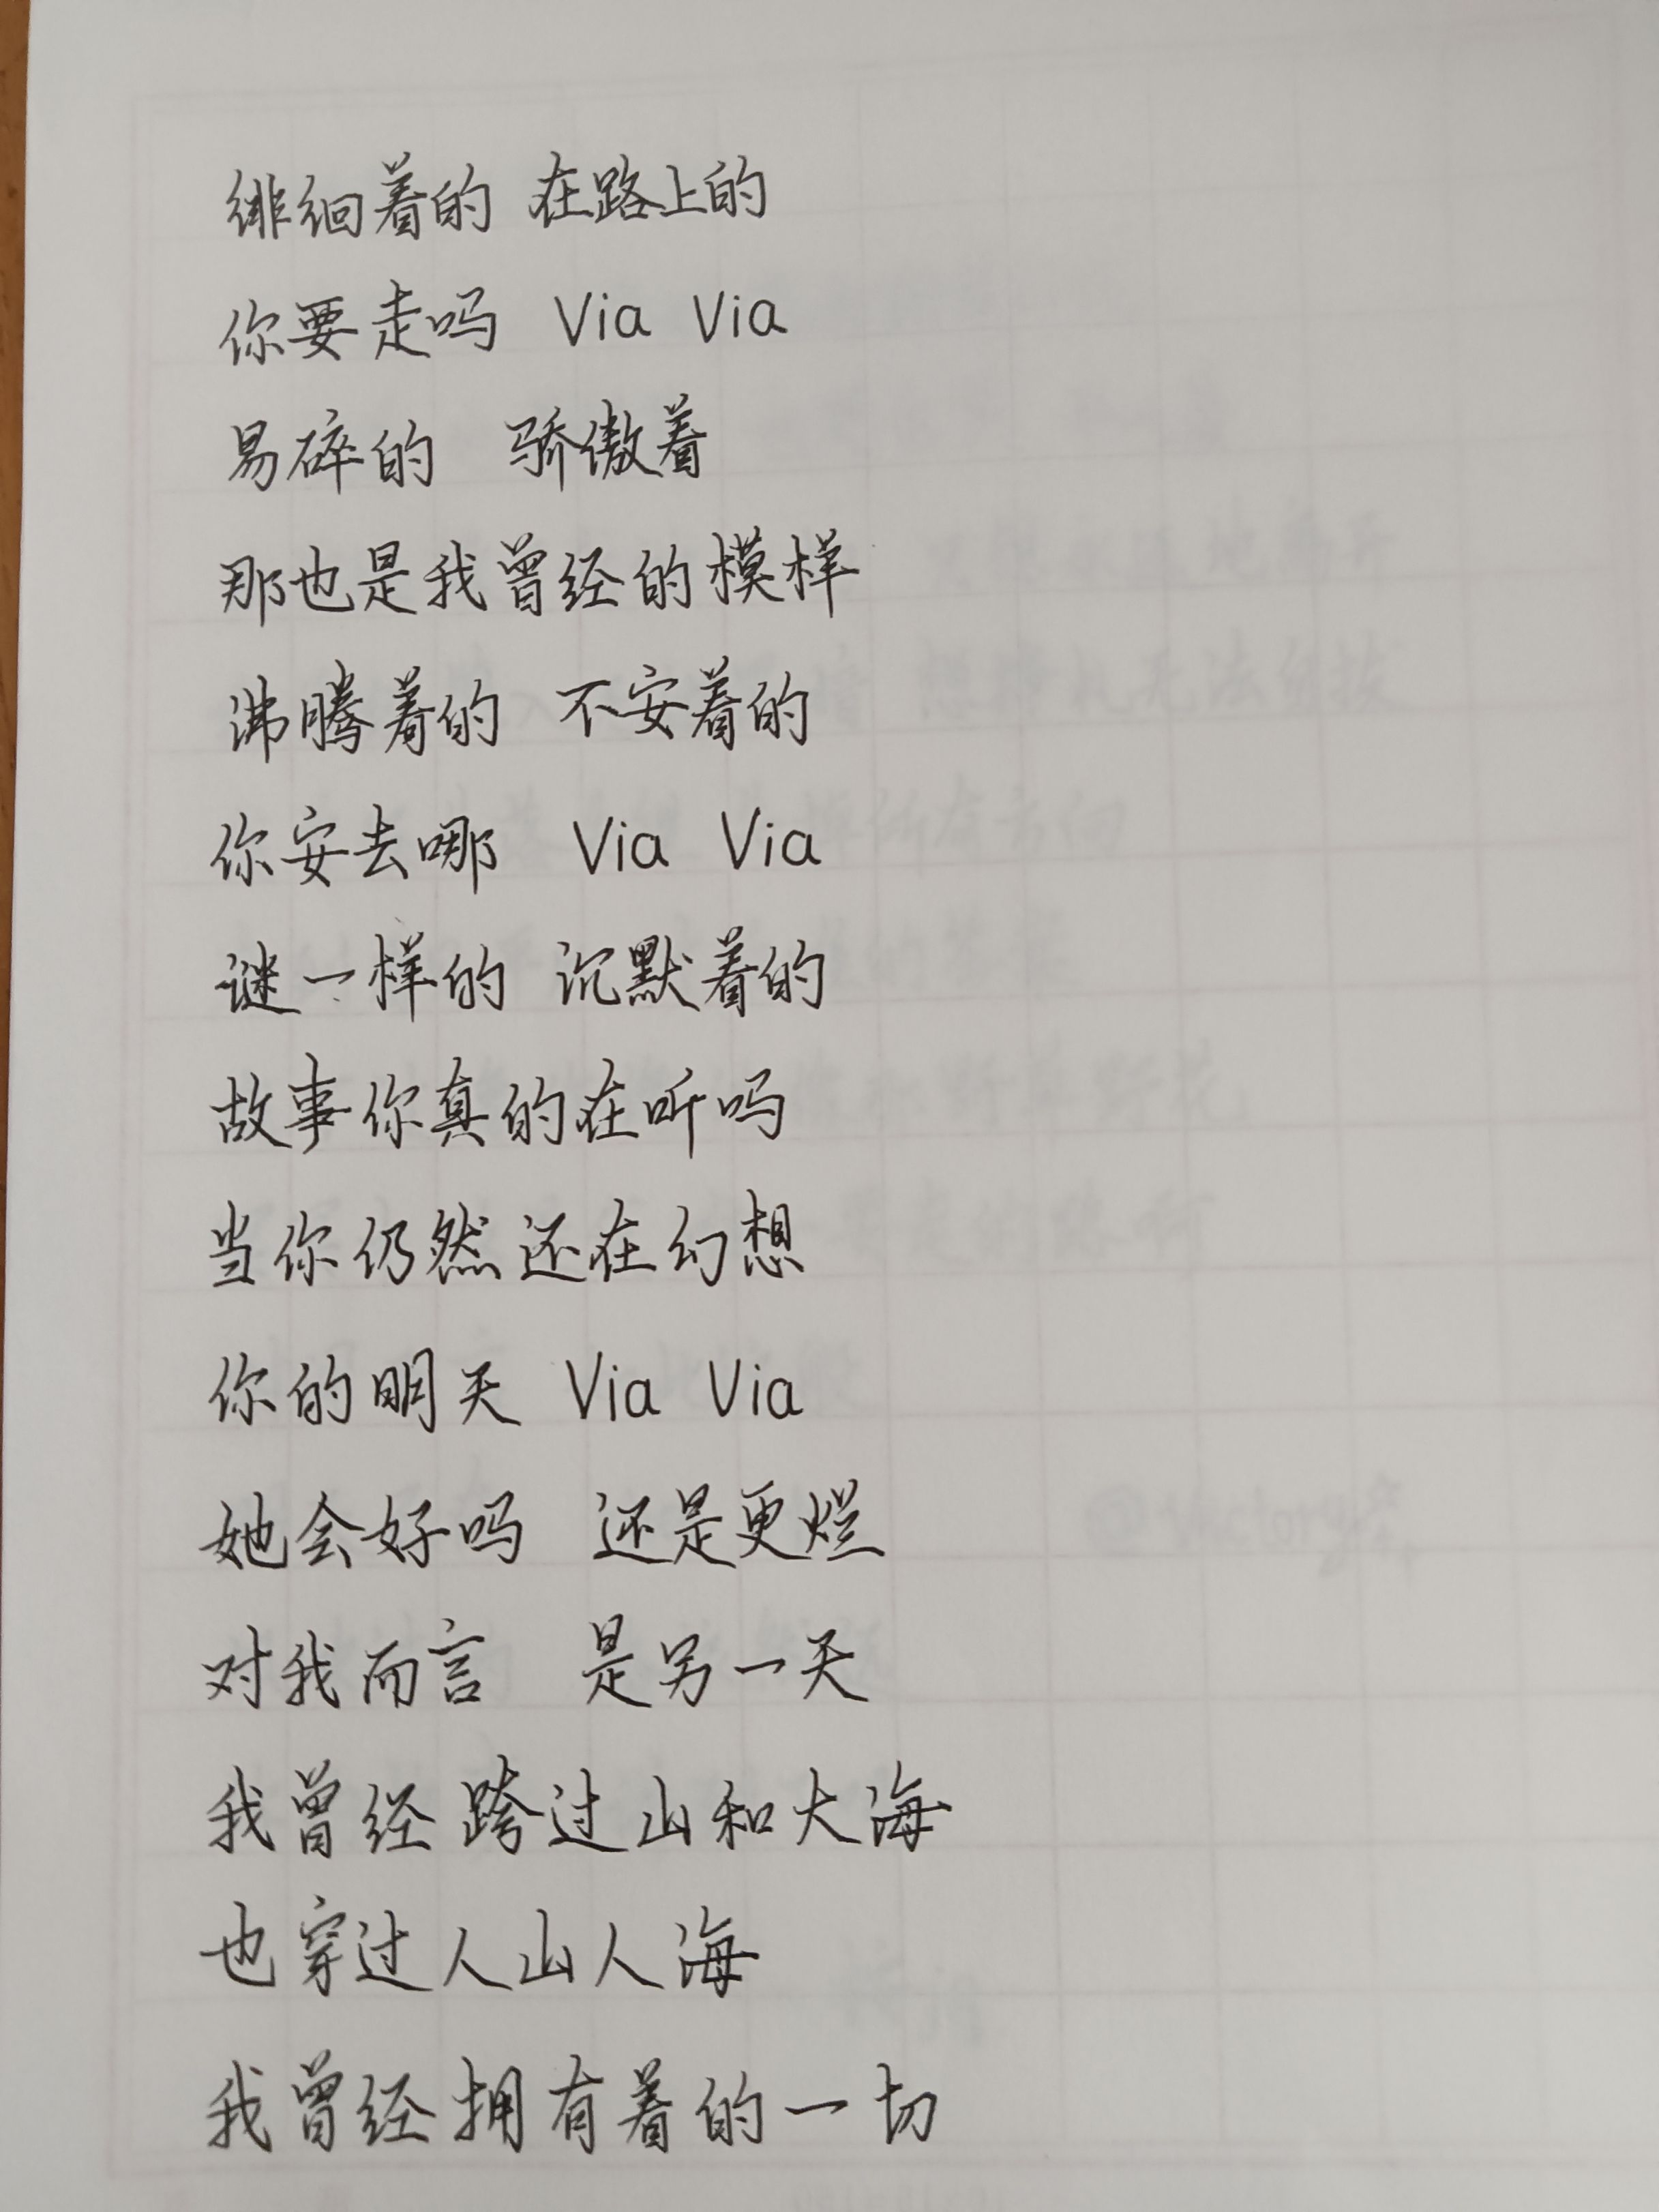 徘徊着的 在路上的
你要走吗 Via Via
易碎的 骄傲着
那也是我曾经的模样
沸腾着的 不安着的
你安去哪 Via Via
谜一样的 沉默着的
故事你真的在听吗
当你仍然还在幻想
你的明天 Via Via
她会好吗 还是更烂
对我而言 是另一天
我曾经跨过山和大海
也穿过人山人海
我曾经拥有着的一切